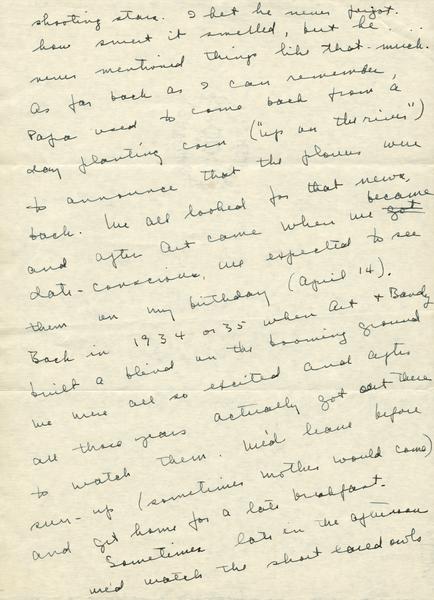 shooting stars. I bet he never forgot
how sweet it smelled, but he . . .
never mentioned things like that much.
As far back as I can remember,
Papa used to come back from a
day planting corn ("up on the river")
to announce that the plovers were
back. We all looked for that news,
and after Art came when we got became
date-conscious, we expected to see
them on my birthday (April 14).
Back in 1934 or 35 when Art & Bandy
built a blind on the booming ground
we were all so excited and after
all those years actually got out there
to watch them. We'd leave before
sun-up (sometimes mother would come)
and get home for a late breakfast.
Sometimes late in the afternoon
we'd watch the short eared owls